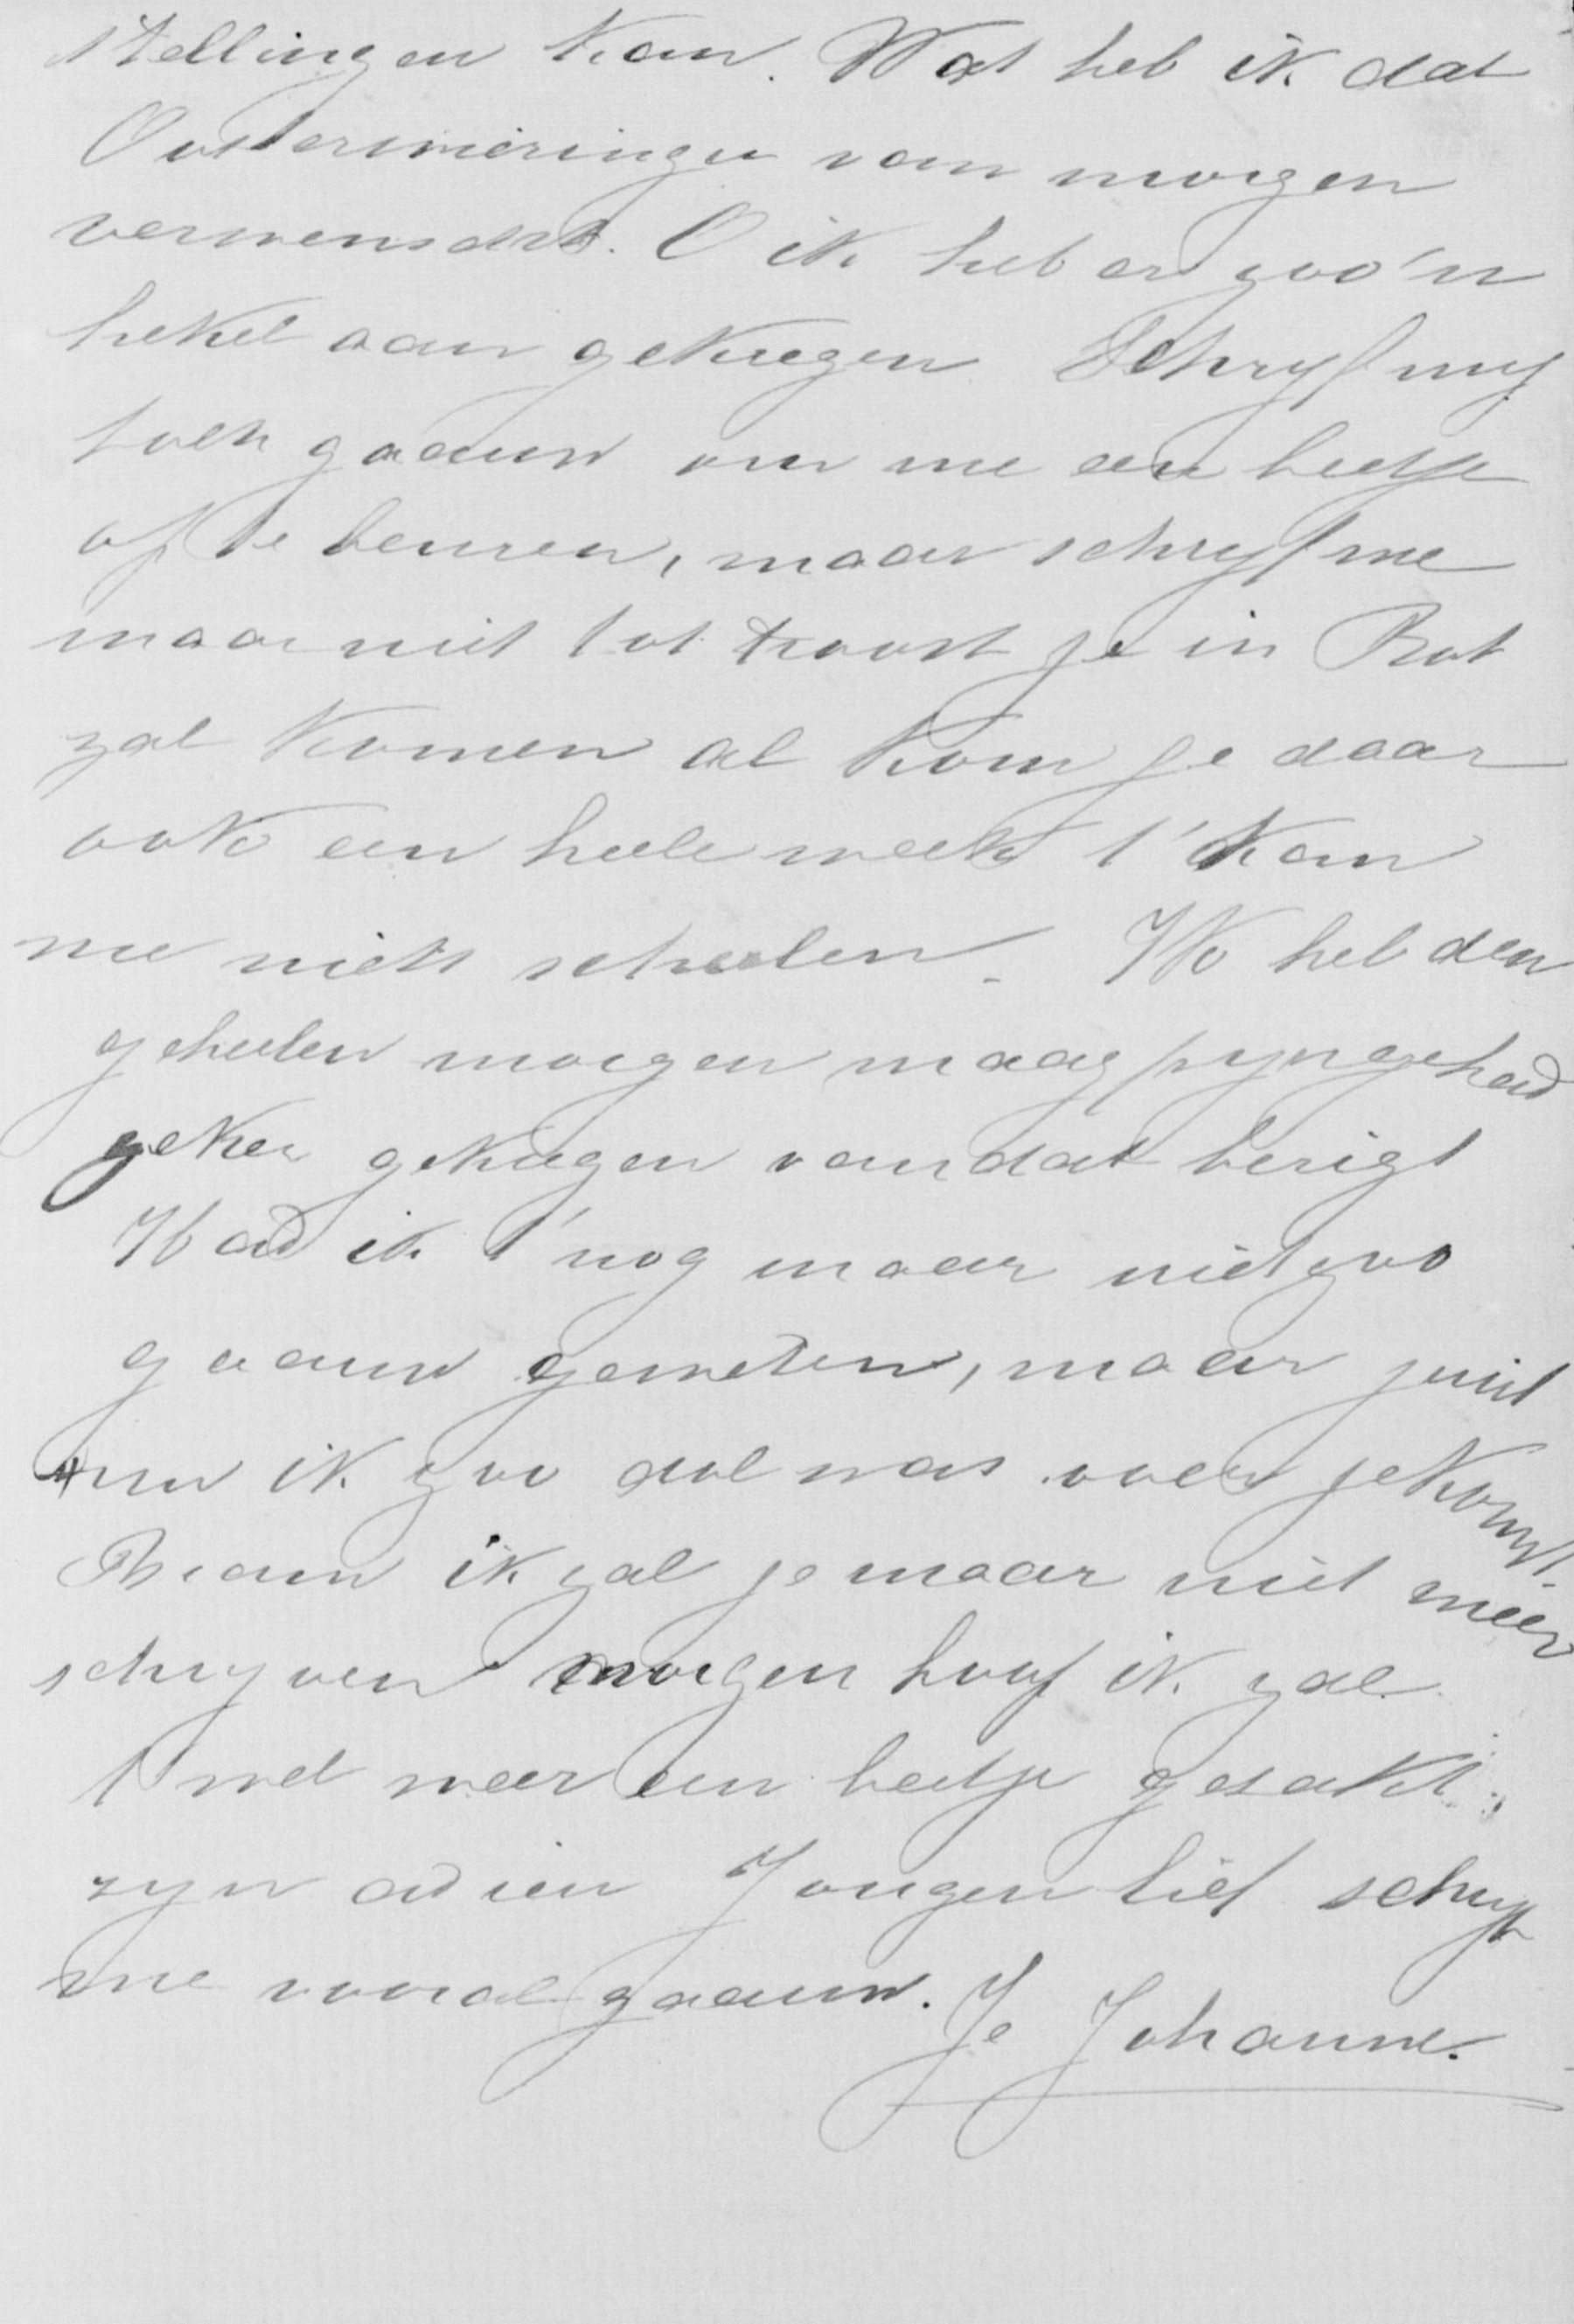 stellingen kan. Wat heb ik dat
Oosterwieringer van morgen
verwenscht. O ik heb er zoo'n
hekel aan gekregen Schryf my
toch gaauw om me een beetje
op te beuren, maar schryf me
maar niet tot troost je in Rot
zal komen al kom je daar
ook een heele week t' kan
me niets schelen. Ik heb den
geheelen morgen maagpyn gehad
zeker gekregen van dat berigt
Had ik t' nog maar niet zoo
gaauw geweten, maar juist
nu ik zoo dol was over je komst.
Braam ik zal je maar niet meer
schryven morgen hoop ik zal
t wel weer een beetje gezakt
zyn adieu Jongen lief schryf
me vooral gaauw. Je Johanne.